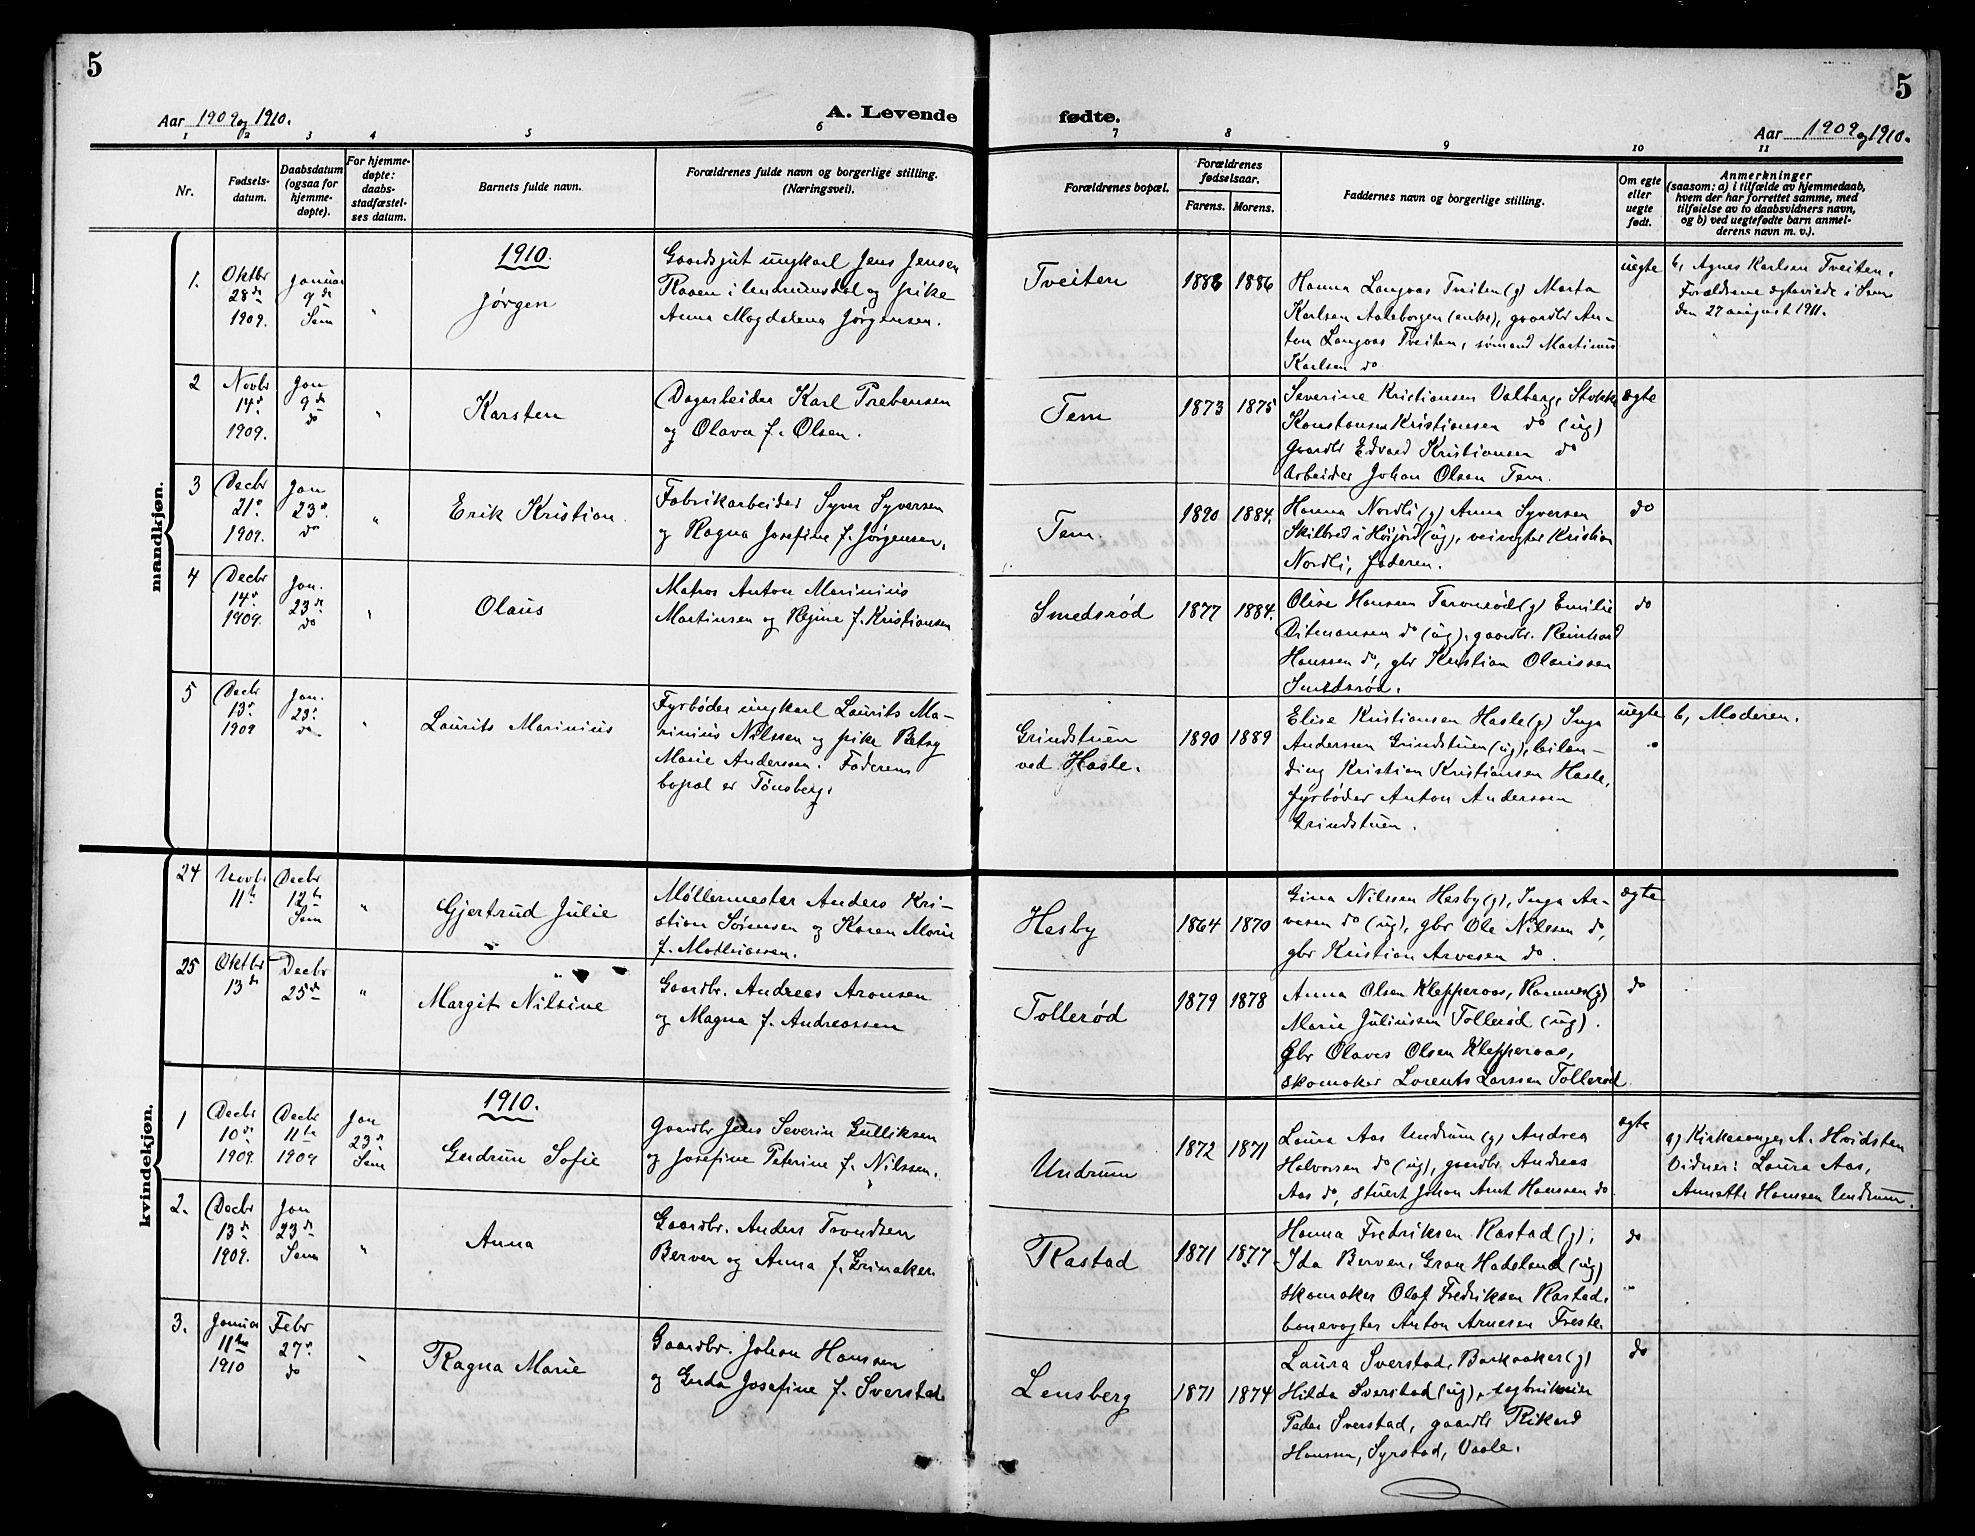 5
Aar 1909 og 1910.
A. Levende
1 2 3 4 5 6
Nr.
Fødsels-
datum.
Daabsdatum
(ogsaa for
hjemme-
døpte).
For hjemme-
døpte:
daabs-
stadfæstel-
ses datum.
Barnets fulde navn.
Forældrenes fulde navn og borgerlige stilling.
(Næringsvei).
mandkjøn.
1910.
1.
Oktbr
28de
1909.
Januar
9de
Sem
"
Jørgen
Gaardsgut ungkarl Jens Jensen
Raaen i Undrumsdal og pike
Anna Magdalena Jørgensen.
2
Novbr
14de
1909.
Jan
9de
do
"
Karsten
Dagarbeider Karl Prebensen
og Olava f. Olsen.
3
Decbr
21de
1909.
Jan
23de
do
"
Erik Kristian
Fabrikarbeider Syver Syversen
og Ragna Josefine f. Jørgensen.
4
Decbr
14de
1909.
Jan.
23de
do
"
Olaus
Matros Anton Marinius
Martinsen og Regine f. Kristiansen
5
Decbr
13de
1909
Jan.
23de
do
"
Laurits Marinius
Fyrbøder ungkarl Laurits Ma-
rinius Nilssen og pike Betsy
Marie Anderssen. Faderens
bopæl er Tønsberg.
kvindekjøn.
24
Novbr
11te
Decbr
12te
Sem
"
Gjertrud Julie
Møllermester Anders Kri-
stian Sørensen og Karen Marie
f. Mathiassen.
25
Oktbr
13de
Decbr
25de
"
Margit Nilsine
Gaardbr. Andreas Aronsen
og Magna f. Andreassen
1910.
1
Decbr
10de
1909.
Decbr
11te
1909
Jan
23de
Sem
Gudrun Sofie
Gaardbr Jens Severin Gulliksen
og Josefine Peterine f. Nilssen.
2.
Decbr
13de
1909.
Jan
23de
Sem
"
Anna
Gaardbr. Anders Trondsen
Berven og Anna f. Grimaker
3.
Januar
11te
1910
Febr
27de
do
"
Ragna Marie
Gaardbr. Johan Hanssen
og Gerda Josefine f. Sverstad
5
fødte.
Aar 1909 og 1910.
7 8 9 10 11
Forældrenes bopæl.
Forældrenes
fødselsaar.
Farens. Morens.
Faddernes navn og borgerlige stilling.
Om egte
eller
uegte
født.
Anmerkninger
(saasom: a) i tilfælde av hjemmedaab,
hvem der har forrettet samme, med
tilføielse av to daabsvidners navn,
og b) ved uegtefødte barn anmel-
derens navn m. v.).
Tveiten
1886
Hanna Langaas Tveiten (g) Marta
Karlsen Aaleborgen (enke), gaardbr An-
ton Langaas Tveiten, sømand Martinus
Karlsen do
uegte
b, Agnes Karlsen Tveiten.
Forældrene egteviede i Sem
den 27 august 1911.
Tem
1873 1875
Severine Kristiansen Valberg, Stokke
Konstanse Kristiansen do (ug)
Gaardbr Edvard Kristiansen do
Arbeider Johan Olsen Tem.
egte
Tem
1890 1884.
Hanna Nordli (g) Anna Syversen
Skilbred i Høijord (ug), veivogter Kristian
Nordli, Faderen.
do
Smedsrød
1877 1884.
Olise Hansen Taranrød (g) Emilie
Ditmansen do (ug), gaardbr. Reinhard
Hanssen do, gbr Kristian Olavissen
Smedsrød.
do
Grindstuen
ved Hasle.
1890 1889
Elise Kristiansen Hasle (g) Inga
Anderssen Grindstuen (ug), leilen-
ding Kristian Kristiansen Hasle,
fyrbøder Anton Anderssen
Grindstuen.
uegte
b, Moderen.
Hesby
1864 1870
Gina Nilssen Hesby (g), Inga Ar-
vesen do (ug), gbr Ole Nilssen do,
gbr Kristian Arvesen do.
egte
Tollerød
1879 1878
Anna Olsen Klepperaas, Ramnes (g)
Marie Juliussen Tollerød (ug).
Gbr Olaves Olsen Klepperaas,
skomaker Lorents Larssen Tollerød
do
Undrum
1872 1871
Laura Aas Undrum (g) Andrea
Halvorsen do (ug), gaardbr Andreas
Aas do, stuert Johan Arnt Hanssen do
egte
a) Kirkesanger A. Hvidsten
Vidner: Laura Aas,
Annette Hanssen Undrum.
Rastad
1871 1877
Hanna Fredriksen Rastad (g),
Ida Berven, Gran Hadeland (ug)
skomaker Olaf Fredriksen Rastad.
banevogter Anton Arnesen Freste.
do
Lensberg
1871 1874
Laura Sverstad, Barkaaker (g)
Hilda Sverstad (ug),
Peder Sverstad, gaardbr Rikard
Hanssen, Syrstad, Vaale.
do